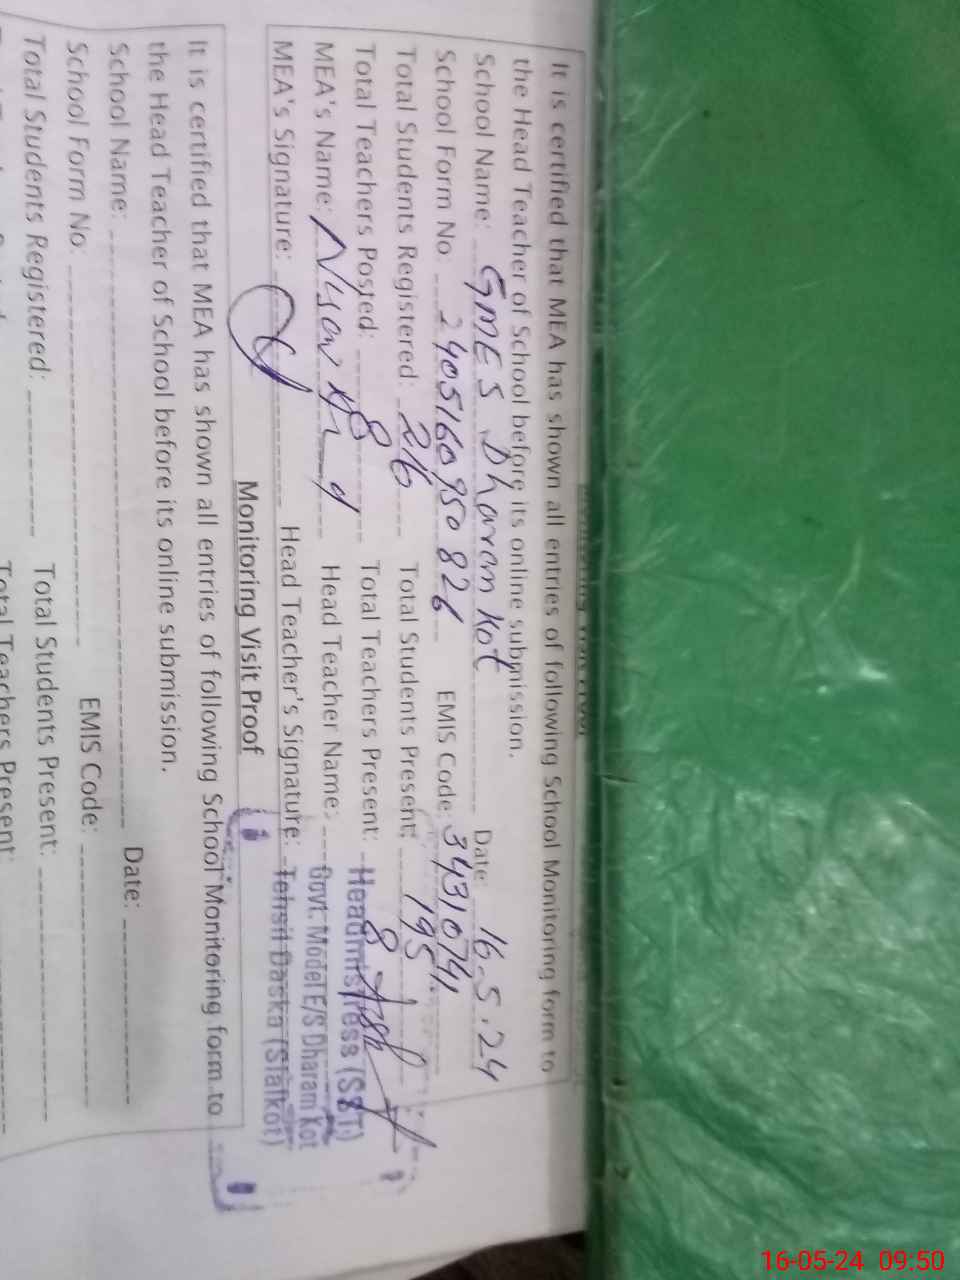 It is certified that MEA has shown all entries of following School Monitoring form to
the Head Teacher of School before its online submission.
School Name: GMES Dharam Kot Date: 16.5.24
School Form No. 2405160950826 EMIS Code: 34310741
Total Students Registered: 216 Total Students Present: 195
Total Teachers Posted: 8 Total Teachers Present: 8
MEA's Name: Head Teacher Name:
MEA's Signature: Head Teacher's Signature:
Headmistress (SST)
Govt. Model E/S Dharam Kot
Tehsil Daska (Sialkot)
Monitoring Visit Proof
It is certified that MEA has shown all entries of following School Monitoring form to
the Head Teacher of School before its online submission.
School Name: Date:
School Form No. EMIS Code:
Total Students Registered: Total Students Present:
Total Teachers Present:
16-05-24 09:50